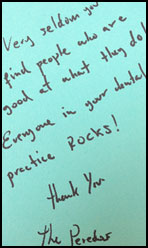 Very seldom you
find people who are
good at what they do!
Everyone in your dental
practice ROCKS!
Thank You
The